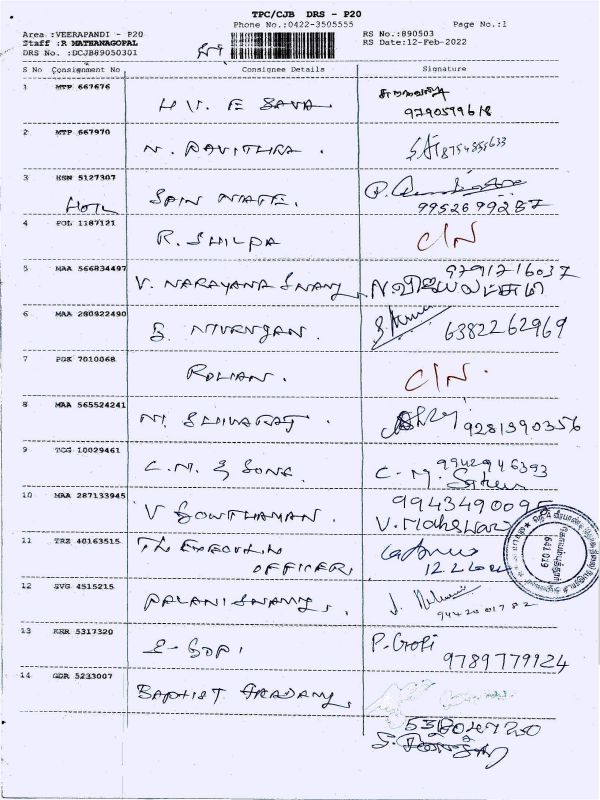 TPC/CJB DRS - P20
Phone No.:0422-3505555 Page No.:1
Area :VEERAPANDI - P20 RS No.:890503
Staff :R MATHANAGOPAL RS Date:12-Feb-2022
DRS No. :DCJB89050301
S No Consignment No Consignee Details Signature
1 MTP 667676 H V. E SAVA
9790599618
2 MTP 667970 N. PAVITHRA . 8754855633
3 KSN 5127307 SPIN NATE.
9952699287
4 POL 1187121 R. SHILPA C/N
5 MAA 566834497 V. NARAYANA SWAMY 9791216037
N. விஜயலட்சுமி
6 MAA 280922490 S. NIVRNJAN. 6382262969
7 PDK 7010068 ROLIAN . C/N.
8 MAA 565524241 M. SHIVARAJ . 9281390356
9 TCG 10029461 C.M. & SONS. 9942946393
C. M.
10 MAA 287133945 V GOWTHAMAN. 9943490095
V. Maheswari
11 TRZ 40163515 TH EXECUTIN
OFFICER,
641 019
12 SVG 4515215 PALANI SWAMY .
9442001782
13 KRR 5317320 E- GOPI P. Gopi
9789779124
14 GDR 5233007 BAPTIST